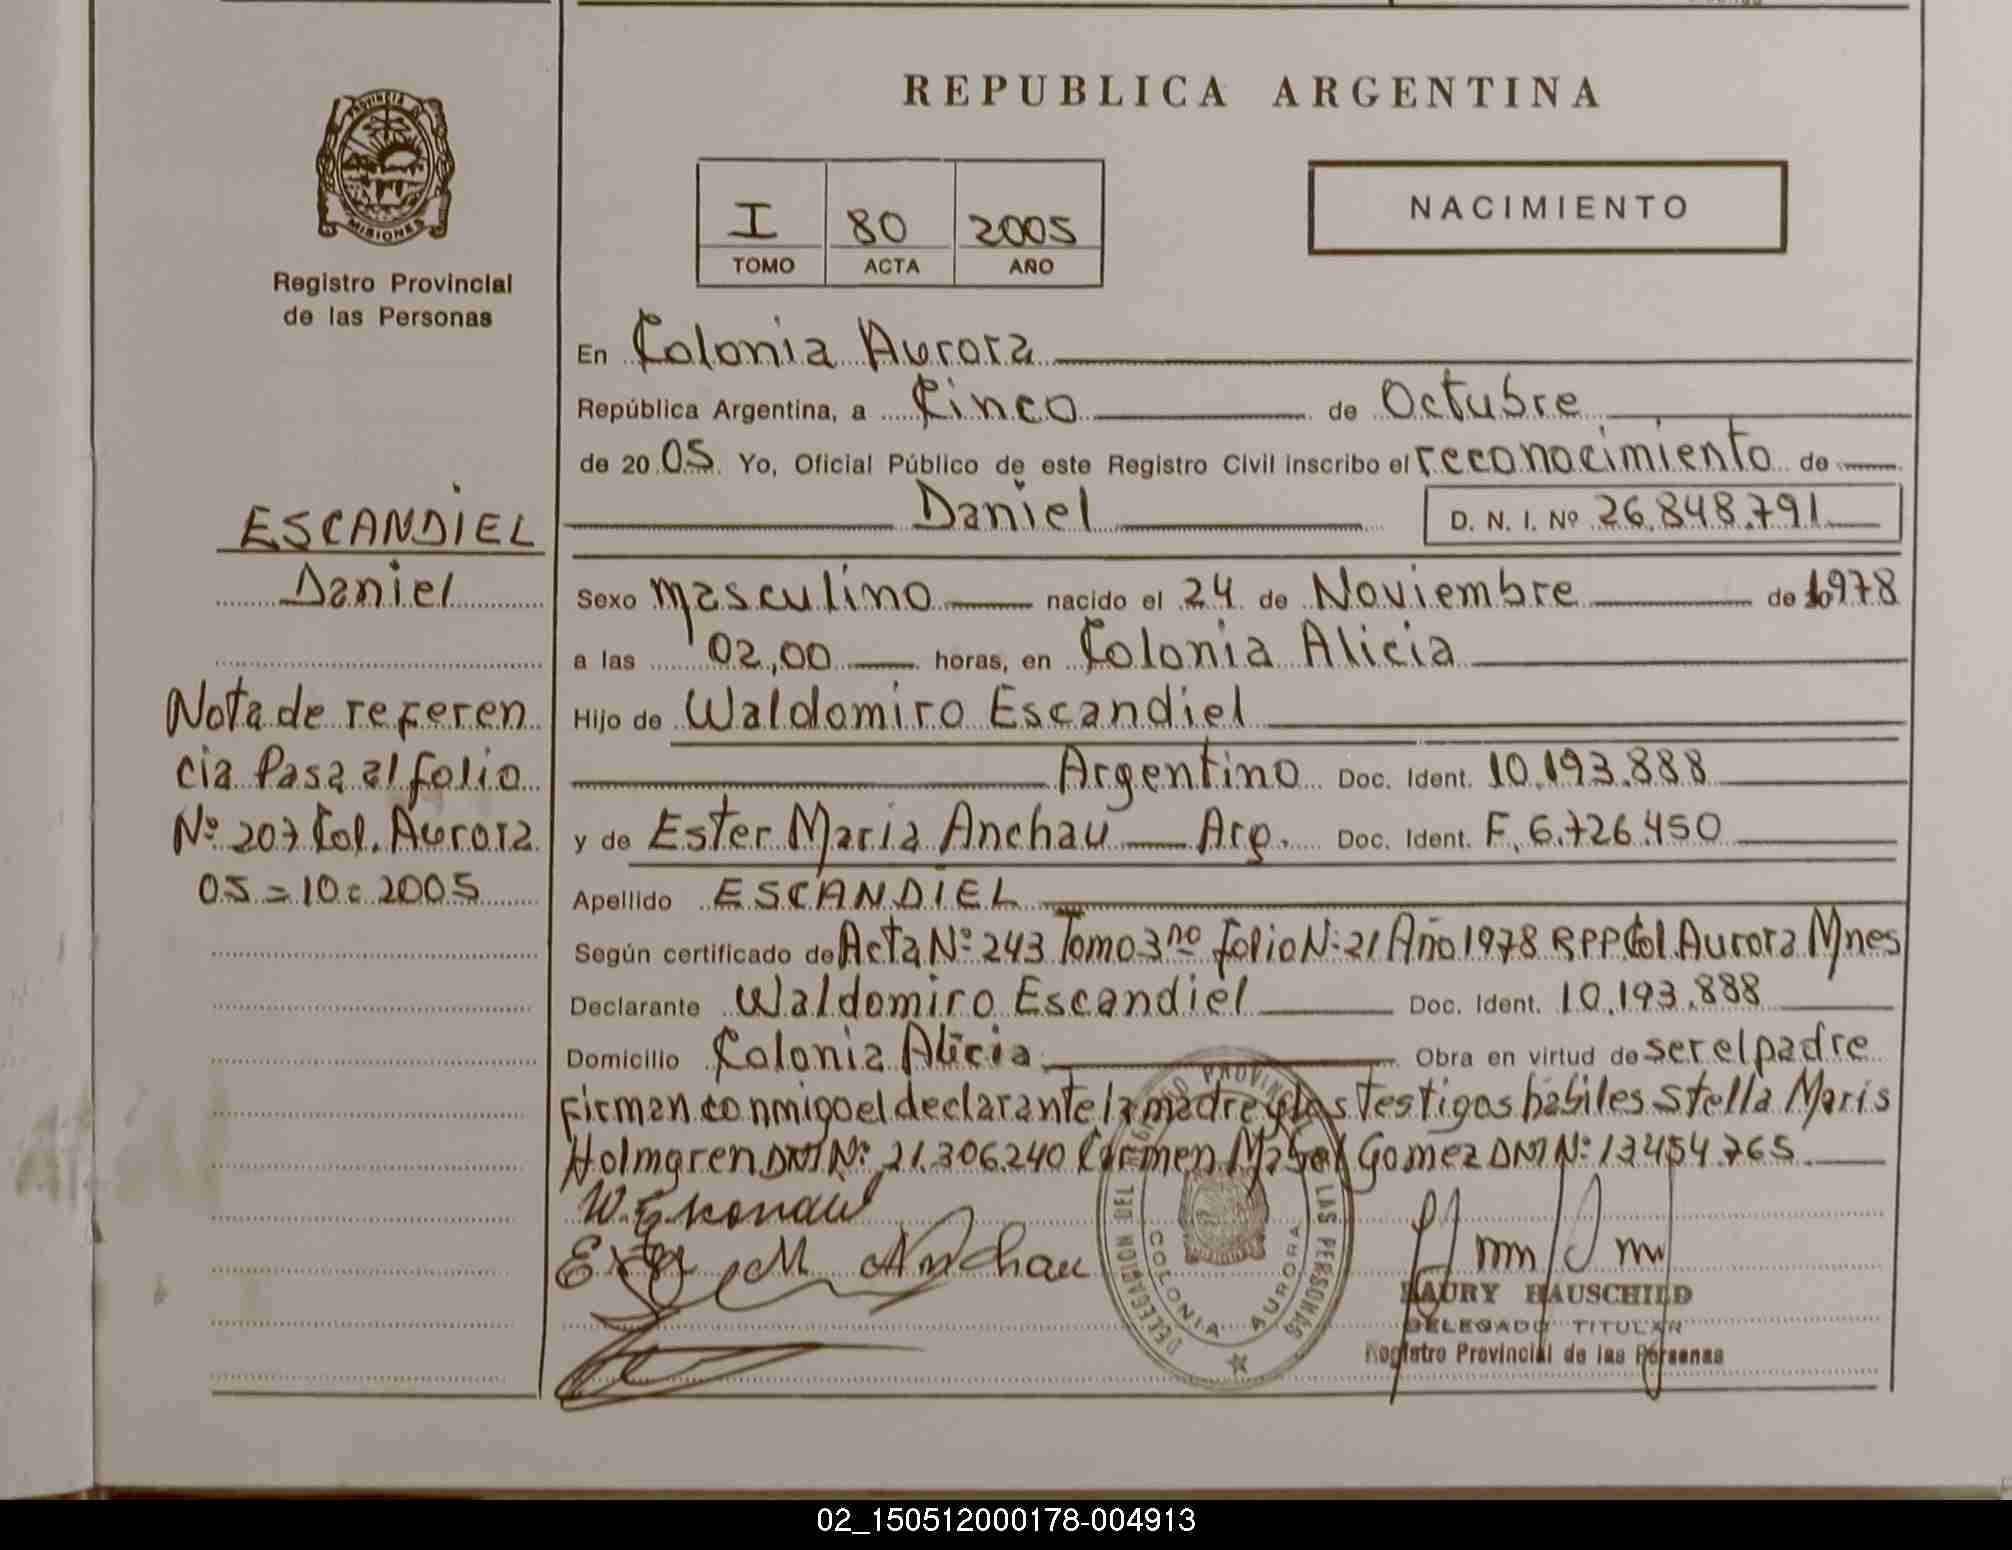 REPUBLICA ARGENTINA
PROVINCIA DE
MISIONES
Registro Provincial
de las Personas
I 80 2005
TOMO ACTA AÑO
NACIMIENTO
En Colonia Aurora
República Argentina, a Cinco de Octubre
de 2005 Yo, Oficial Público de este Registro Civil inscribo el reconocimiento de
Daniel D. N. I. Nº 26.848.791
Sexo masculino nacido el 24 de Noviembre de 1978
a las 02,00 horas, en Colonia Alicia
Hijo de Waldomiro Escandiel
Argentino Doc. Ident. 10.193.888
y de Ester Maria Anchau Arg. Doc. Ident. F. 6.726.450
Apellido ESCANDIEL
Según certificado de Acta Nº 243 Tomo 3no folio Nº 21 Año 1978 RPP Col Aurora Mnes
Declarante Waldomiro Escandiel Doc. Ident. 10.193.888
Domicilio Colonia Alicia Obra en virtud de ser el padre
Firman conmigo el declarante la madre y los testigos habiles Stella Maris
Holmgren DNI Nº 21.306.240 Carmen Mabel Gomez DNI Nº 13454.765
Ester M Anchau
ESCANDIEL
Daniel
Nota de referen
cia Pasa al folio
Nº 207 Col. Aurora
05=10=2005
DELEGACION DEL REGISTRO PROVINCIAL DE LAS PERSONAS
COLONIA AURORA
LAURY HAUSCHILD
DELEGADO TITULAR
Registro Provincial de las Personas
02_150512000178-004913